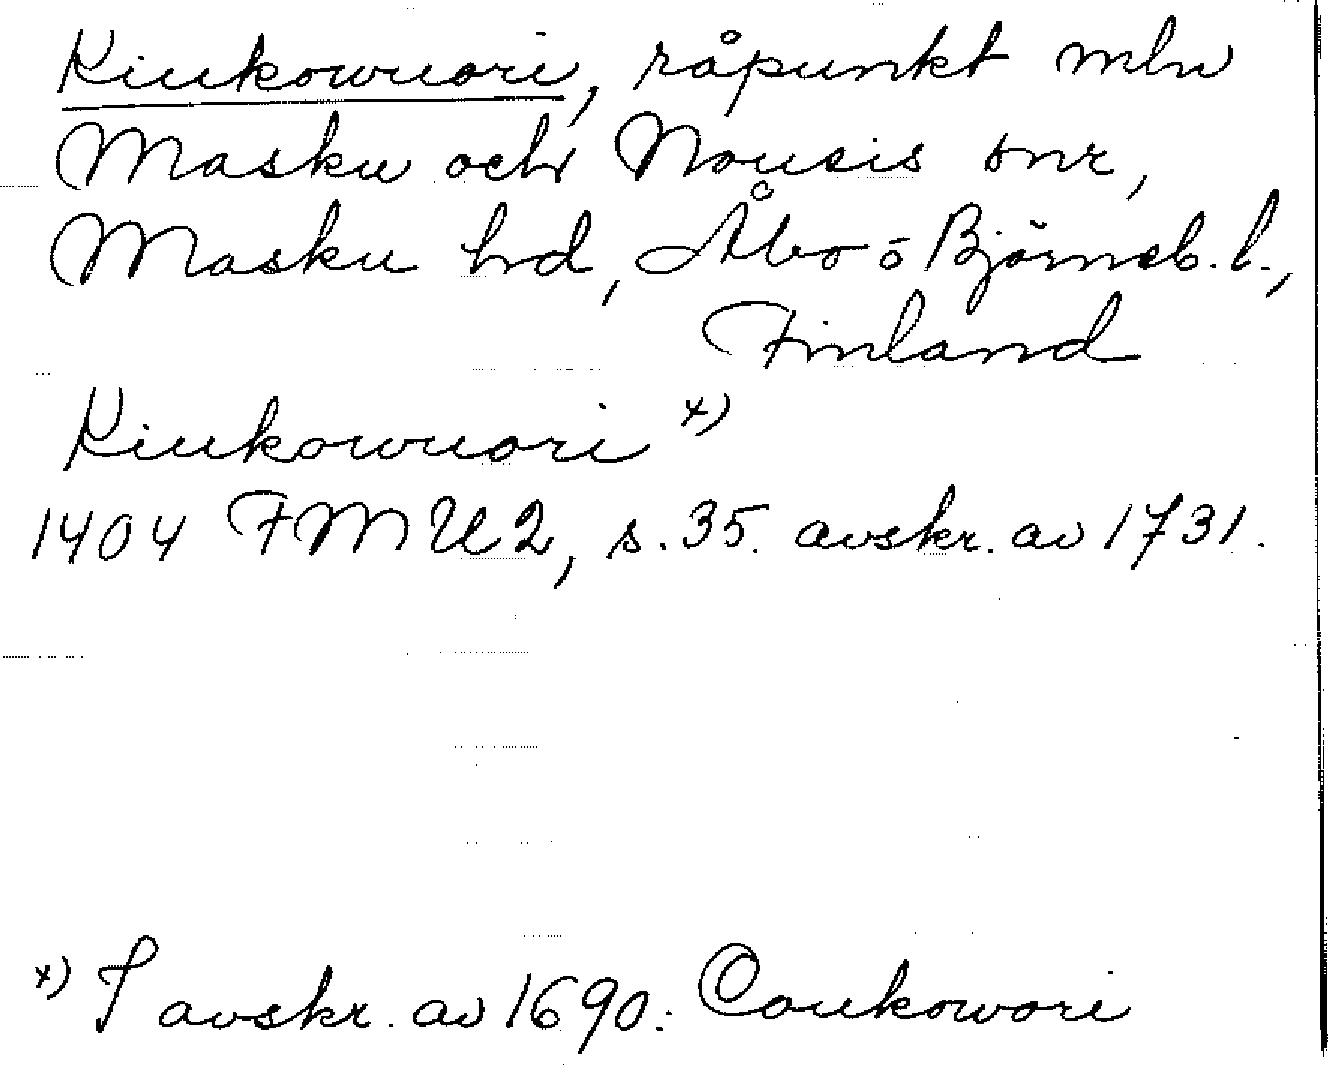 Kiukowuori, råpunkt mln
Masku och Nousis snr,
Masku hd, Åbo o Björneb. l.,
Finland
Kiukowuori x)
1404 FMU 2, s. 35. avskr. av 1731.
x) I avskr. av 1690: Coukowori